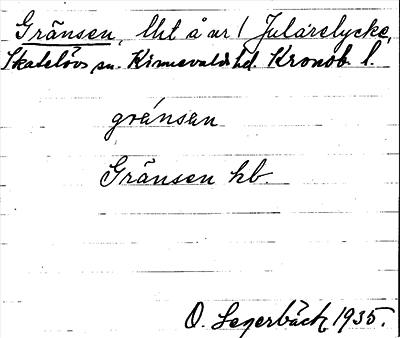 Gränsen, lht å av! Jularelycke,
Skatelövs sn. Kinnevalds hd. Kronob. l.
grȧ́nsan
Gränsen kb.
O. Segerbäck 1935.